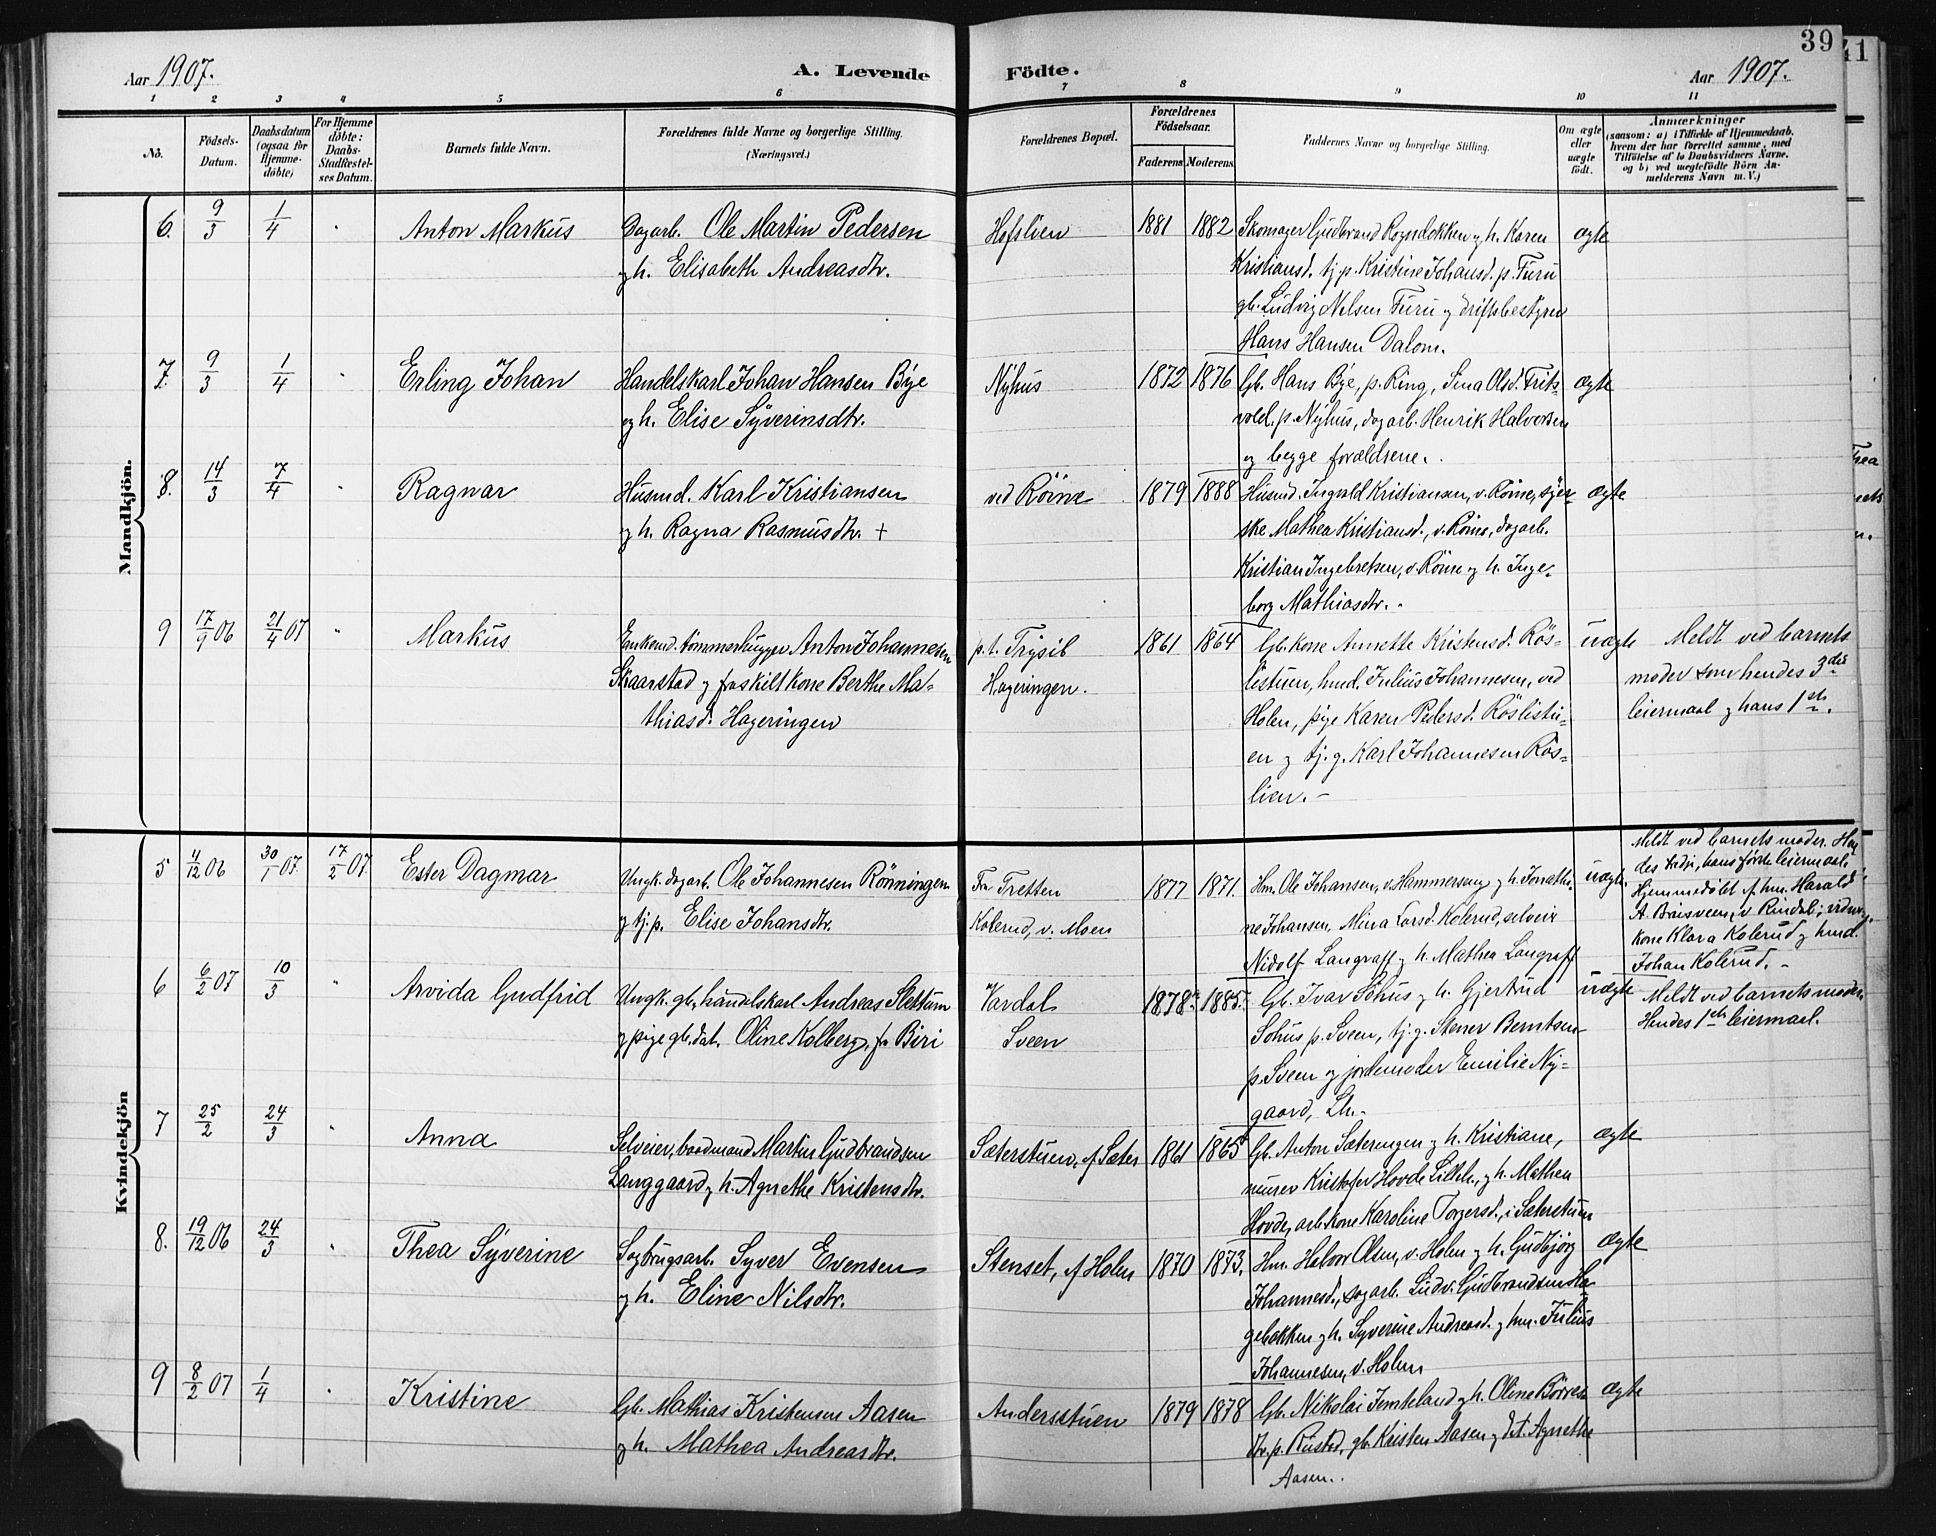 39
Aar 1907. A. Levende Födte. Aar 1907.
1 2 3 4 5 6 7 8 9 10 11
No.
Födsels-
Datum.
Daabsdatum
(ogsaa for
Hjemme-
döbte)
For Hjemme
döbte:
Daabs-
Stadfæstel-
ses Datum.
Barnets fulde Navn.
Forældrenes fulde Navne og borgerlige Stilling.
(Næringsvei.)
Forældrenes Bopæl.
Forældrenes
Födselsaar.
Faderens Moderens.
Faddernes Navne og borgerlige Stilling.
Om ægte
eller
uægte
födt.
Anmærkninger
(saasom: a) i Tilfælde af Hjemmedaab,
hvem der har forrettet samme, med
Tilföielse af to Daabsvidners Navne.
og b) ved uægtefödte Börn An-
melderens Navn m. V.)
Mandkjön.
6. 9/3 1/4 " Anton Markus
Dagarb. Ole Martin Pedersen
og h. Elisabeth Andreasdtr.
Hofslien
1881 1882
Skomager Gudbrand Rogndokken og h. Karen
Kristiansd. tj.p. Kristine Johansd. p. Furu
gb. Ludvig Nilsen Furu og driftsbestyrer
Hans Hansen Dalom.
ægte
7. 9/3 1/4 " Erling Johan
Handelskarl Johan Hansen Bye
og h. Elise Syverinsdtr.
Nyhus
1872 1876
Gb. Hans Bye, p. Ring, Sina Olsd. Frits-
vold, p. Nyhus, dagarb. Henrik Halvorsen
og begge forældrene.
ægte
8. 14/3 7/4 " Ragnar
Husmd. Karl Kristiansen
og h. Ragna Rasmusdtr. +
ved Röine
1879 1888
Husmd. Ingvald Kristiansen, v. Röine, syer-
ske Mathea Kristiansd., v. Röine, dagarb.
Kristian Ingebretsen, v. Röine og h. Inge-
borg Mathiasdtr.
ægte
9 17/9 06 21/4 07 " Markus
Enkemd. tömmerhugger Anton Johannesen
Skaarstad og fraskilt kone Berthe Ma-
thiasd. Hageringen
p.t. Trysil
Hageringen.
1861 1864
Gb.kone Annette Kristensd. Rös-
listuen, hmd. Julius Johannesen, ved
Holen, pige Karen Pedersd. Röslistu-
en og tj.g. Karl Johannesen Rös-
lien.
uægte
Meldt ved barnets
moder som hendes 3die
leiermaal og hans 1ste.
Kvindekjön
5 4/12 06 30/1 07. 17/2 07. Ester Dagmar
Ungk. dagarb. Ole Johannesen Rönningen
og tj.p. Elise Johansdtr.
Fra Tretten
Kolerud, v. Moen
1877 1871.
Hm. Ole Johansen, v. Hammerseng og h. Jonathi-
ne Johansen, Mina Larsd. Kolerud, selveier
Nidolf Langraff og h. Mathea Langraff
uægte.
Meldt ved barnets moder. Hen-
des tredje, hans förste leiermaal.
Hjemmedöbt af hm. Harald
A. Brisveen, v. Rindal; vidner
kone Klara Kolerud og hmd.
Johan Kolerud.
6 6/2 07 10/3 " Arvida Gudfrid
Ungk. gb. handelskarl Andreas Slettum
og pige gb.dat. Oline Kolberg, fr. Biri
Vardal
Sveen
1878. 1885.
Gb. Ivar Sohus og h. Gjertrud
Sohus p. Sveen, tj.g. Stener Berntsen
p. Sveen og jordemoder Emilie Ny-
gaard, Lh.
uægte
Meldt ved barnets moder.
Hendes 1ste leiermaal.
7 25/2 24/3 " Anna
Selveier, baadmand Martin Gudbrandsen
Langgaard og h. Agnethe Kristensdtr.
Sæterstuen, af Sæter
1861 1865
Gb. Anton Sæteringen og h. Kristiane,
murer Kristofer Hovde Lilleh., og h. Mathea
Hovde, arb.kone Karoline Torgersd., i Sæterstuen
ægte
8. 19/12 06 24/3 " Thea Syverine
Sagbrugsarb. Syver Evensen
og h. Eline Nilsdtr.
Stenset, af Holen
1870 1873.
Hm. Halvor Olsen, v. Holen og h. Gudbjörg
Johannesd., dagarb. Ludv. Gudbrandsen Ha-
gebakken og h. Syverine Andreasd. og hm. Julius
Johannesen, v. Holen
ægte
9 8/2 07 1/4 " Kristine
Gb. Mathias Kristensen Aasen
og h. Mathea Andreasdtr.
Andersstuen
1879 1878
Gb. Nikolai Jemteland og h. Oline Börres-
dtr. p. Rustad, gb. Kristen Aasen og dat. Agnethe
Aasen.
ægte